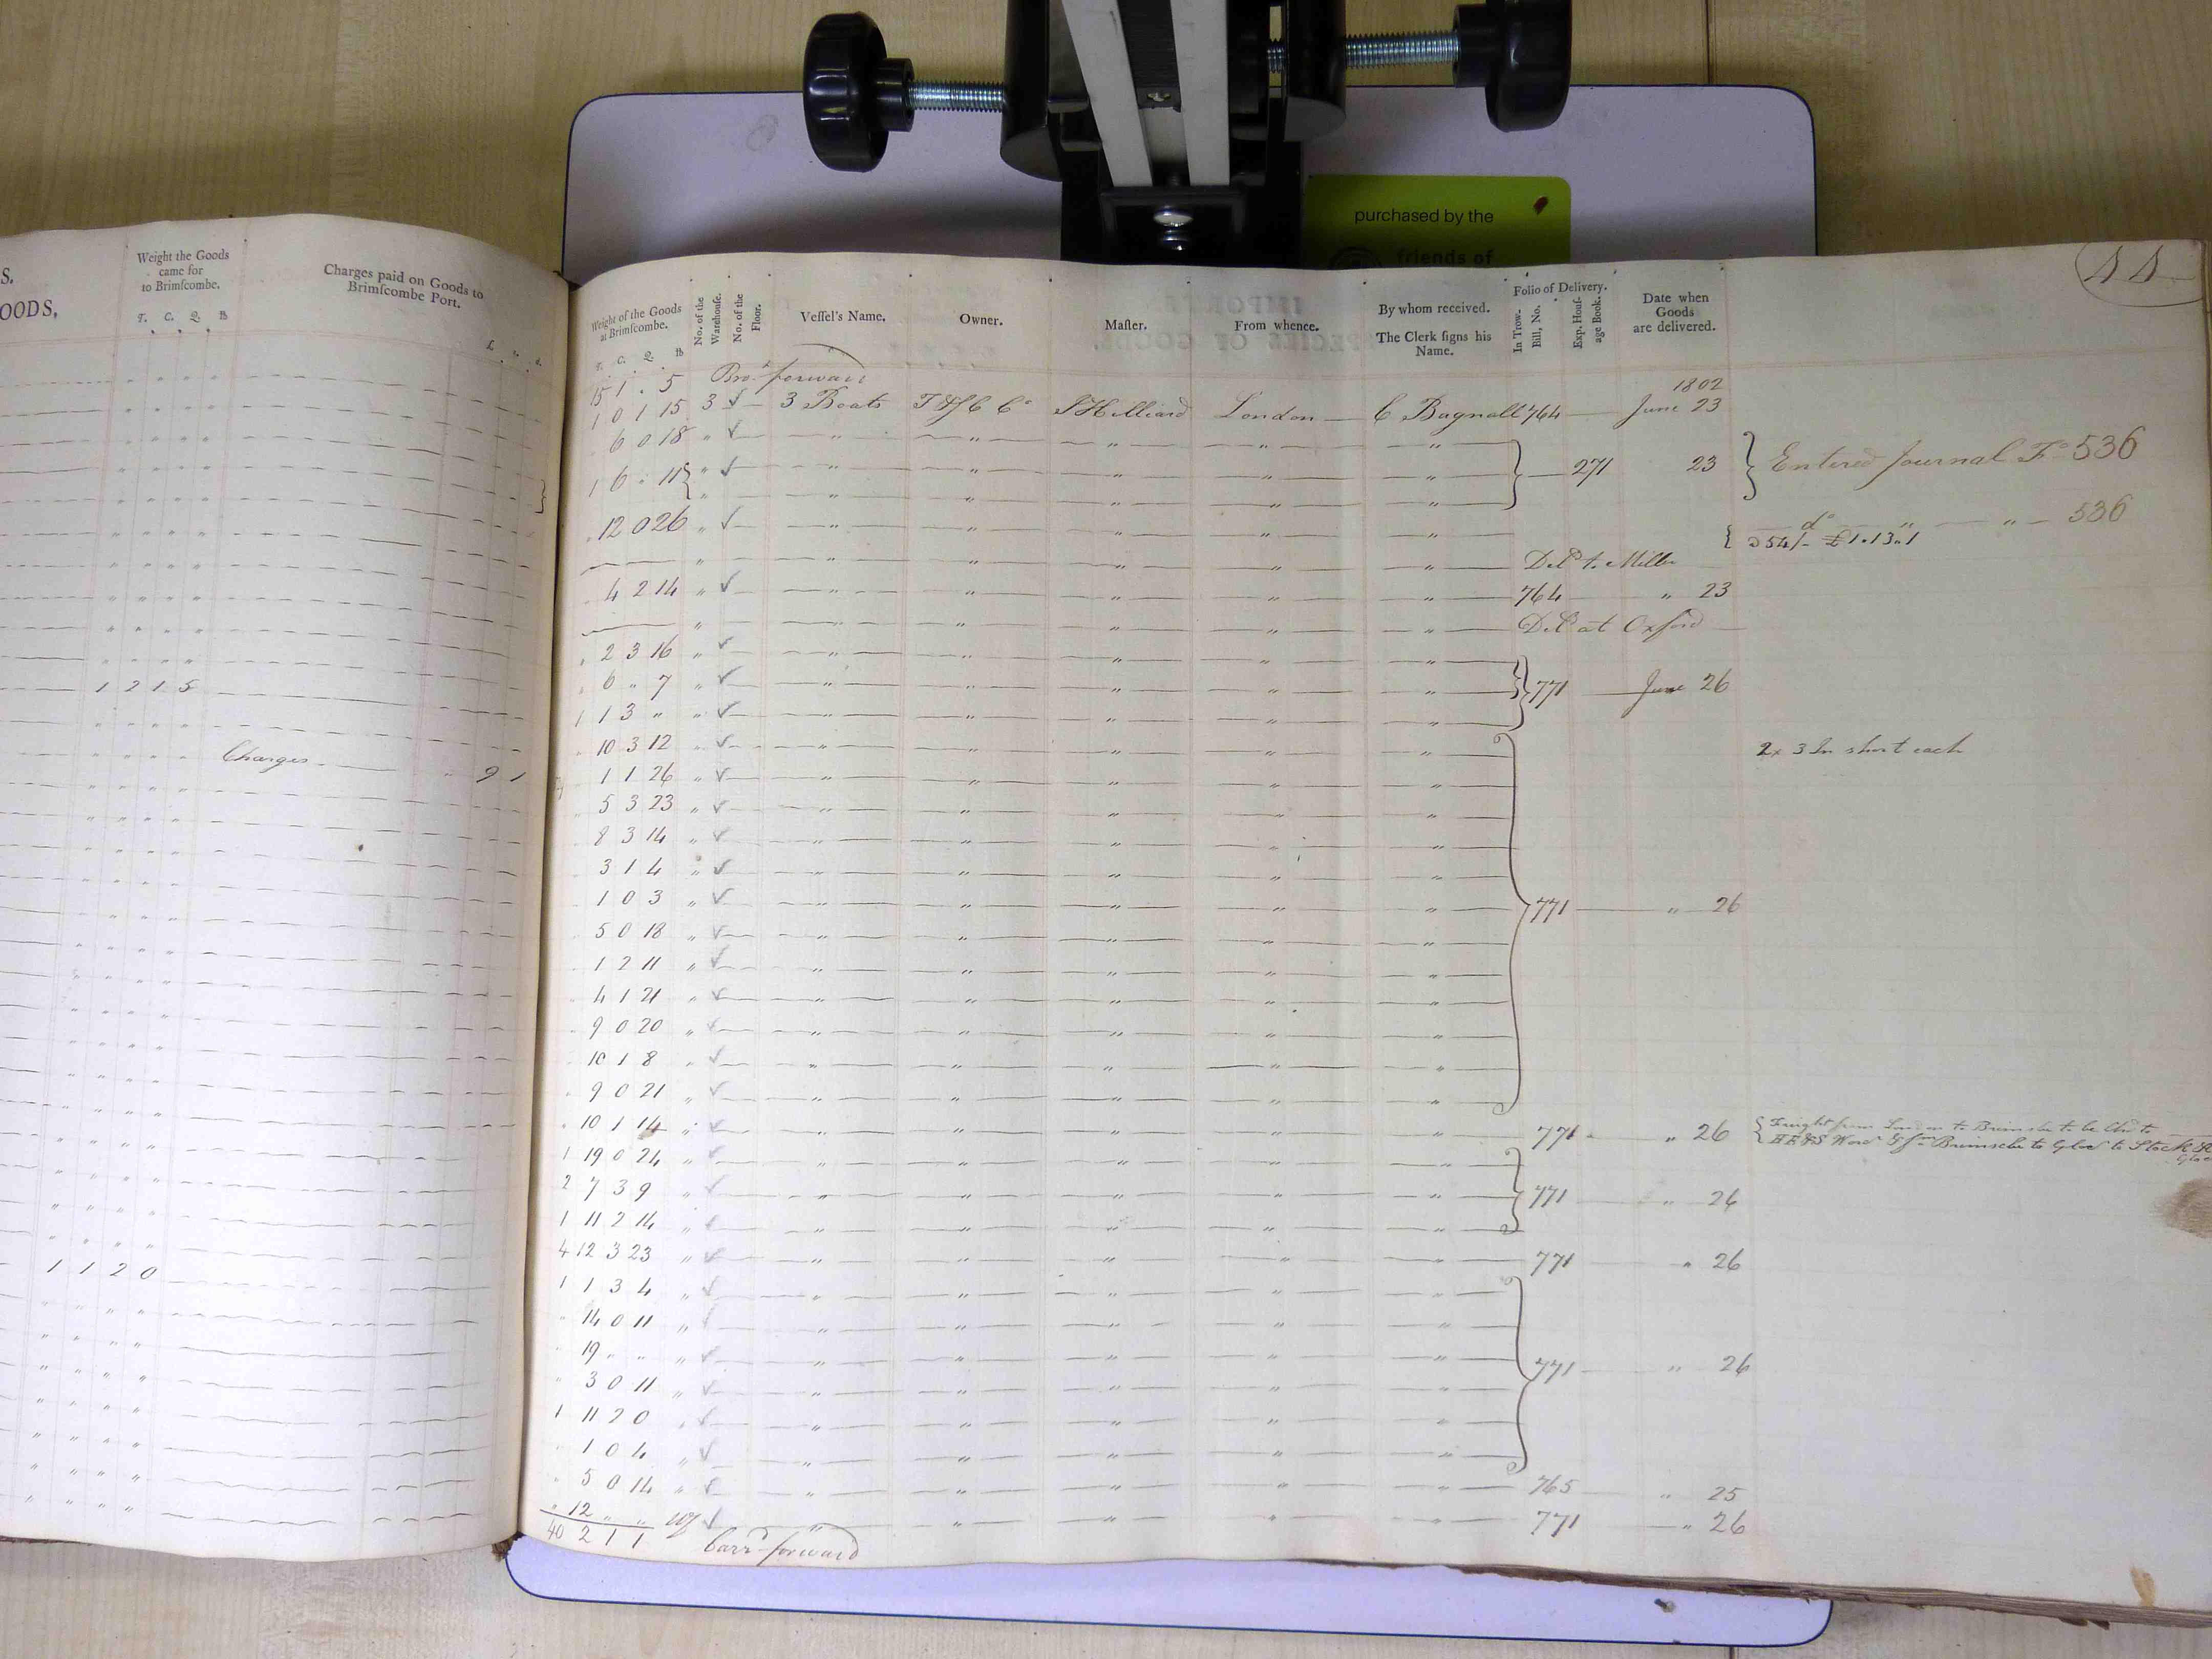 purchased by the
friends of
S.
OODS,
Weight the Goods
came for
to Brimſcombe.
T. C. Q. lb
Charges paid on Goods to
Brimſcombe Port.
£ s. d.
1 2 1 5
Charges 9 1
1 1 2 0
44
Weight of the Goods
at Brimſcombe.
T. C. Q. lb
No. of the
Warehouſe.
No. of the
Floor.
Veſſel's Name.
Owner.
Maſter.
From whence.
By whom received.
The Clerk ſigns his
Name.
Folio of Delivery.
In Trow-
Bill, No.
Exp. Houſ-
age Book.
Date when
Goods
are delivered.
15 1 . 5 Bro.t forward 1802
1 0 1 15 3 ✓ 3 Boats London C Bagnall 764 June 23
" 6 0 18 " ✓
1 6 " 11 " ✓ } 271 23 } Entered Journal Fo 536
" 12 0 26 " ✓
do " " 536
254/- £1.13.1
Deld to Miller
" 4 2 14 " ✓ 764 " 23
Deld at Oxford
" 2 3 16 " ✓
" 6 " 7 " ✓ } 771 June 26
1 1 3 " " ✓
" 10 3 12 " ✓ 2x 3 In short each
" 1 1 26 " ✓
" 5 3 23 " ✓
" 8 3 14 " ✓
" 3 1 4 " ✓
" 1 0 3 " ✓ } 771 " 26
" 5 0 18 " ✓
" 1 2 11 " ✓
" 4 1 21 " ✓
" 9 0 20 " ✓
" 10 1 8 " ✓
" 9 0 21 " ✓
" 10 1 14 " ✓ 771 " 26 { Freight from London to Brimsche to be Chd to
Brimsche to Glos to Stock &
1 19 0 24 " ✓
2 7 3 9 " ✓ } 771 " 26
1 11 2 14 " ✓
4 12 3 23 " ✓ 771 " 26
1 1 3 4 " ✓
" 14 0 11 " ✓
" 19 " " " ✓
" 3 0 11 " ✓ } 771 " 26
1 11 2 0 " ✓
" 1 0 4 " ✓
" 5 0 14 " ✓ 765 " 25
" 12 " " ✓ 771 " 26
40 2 1 1 Carrd forward